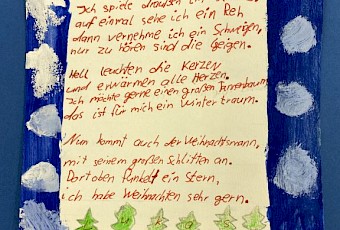 Ich spiele draußen im
auf einmal sehe ich ein Reh,
dann vernehme ich ein Schweigen,
nur zu hören sind die Geigen.
Hell leuchten die Kerzen
und erwärmen alle Herzen.
Ich möchte gerne einen großen Tannenbaum,
das ist für mich ein Wintertraum.
Nun kommt auch der Weihnachtsmann,
mit seinem großen Schlitten an.
Dort oben funkelt ein Stern,
ich habe Weihnachten sehr gern.